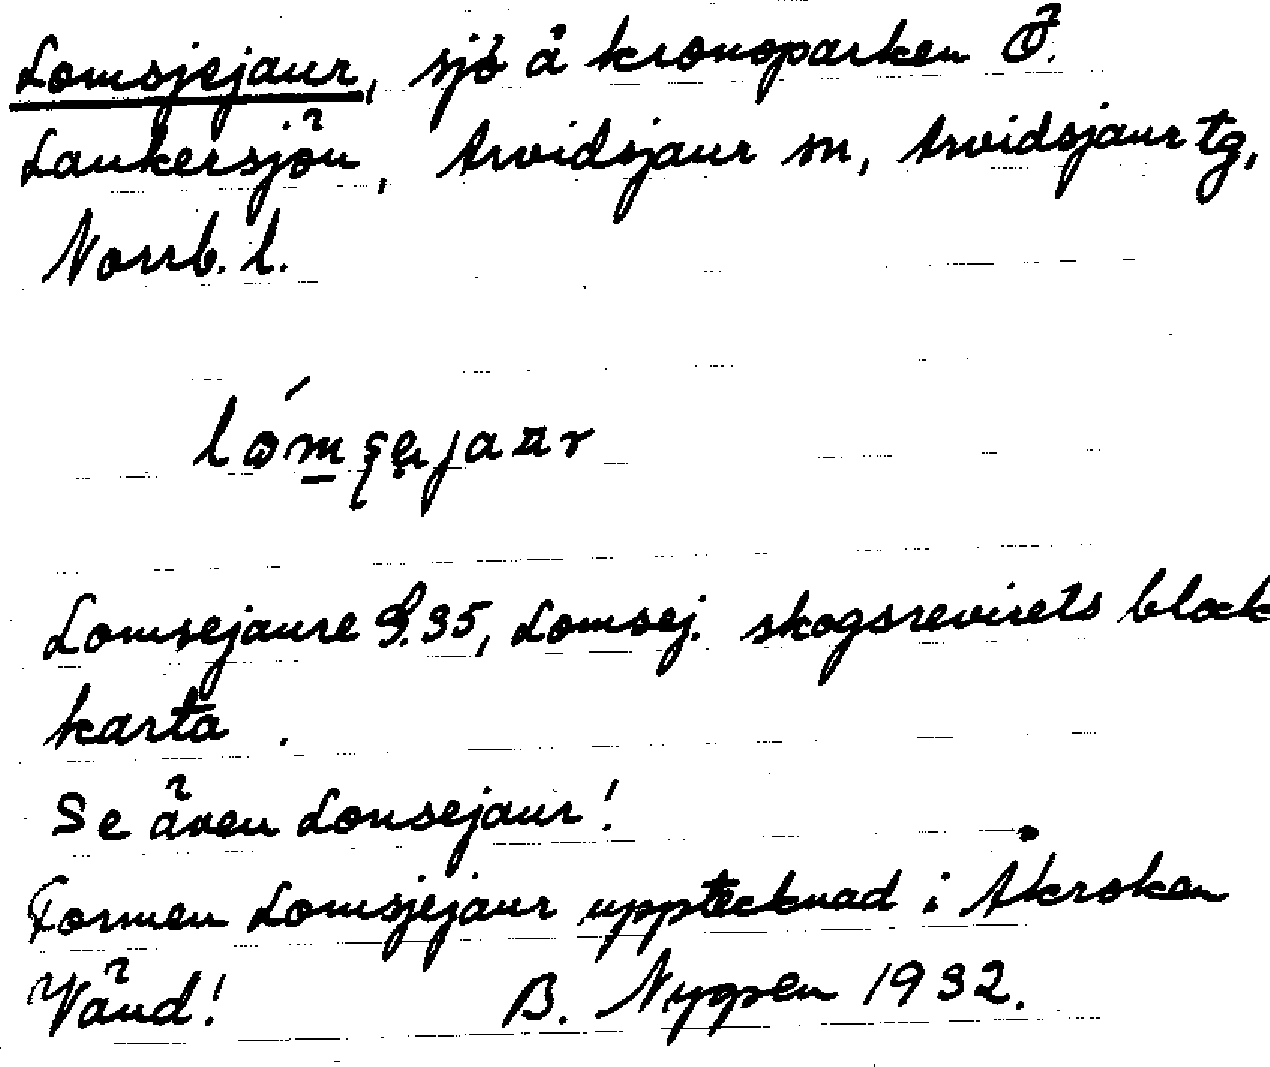 Lomsjejaur, sjö å kronoparken Ö.
Laukersjön, Arvidsjaur sn, Arvidsjaur tg,
Norrb. l.
Lomsejaure G. 35, Lomsej. skogsrevirets block
karta.
Se även Lonsejaur!
Formen Lomsjejaur upptecknad i Åkroken
Vänd! B. Nygren 1932.